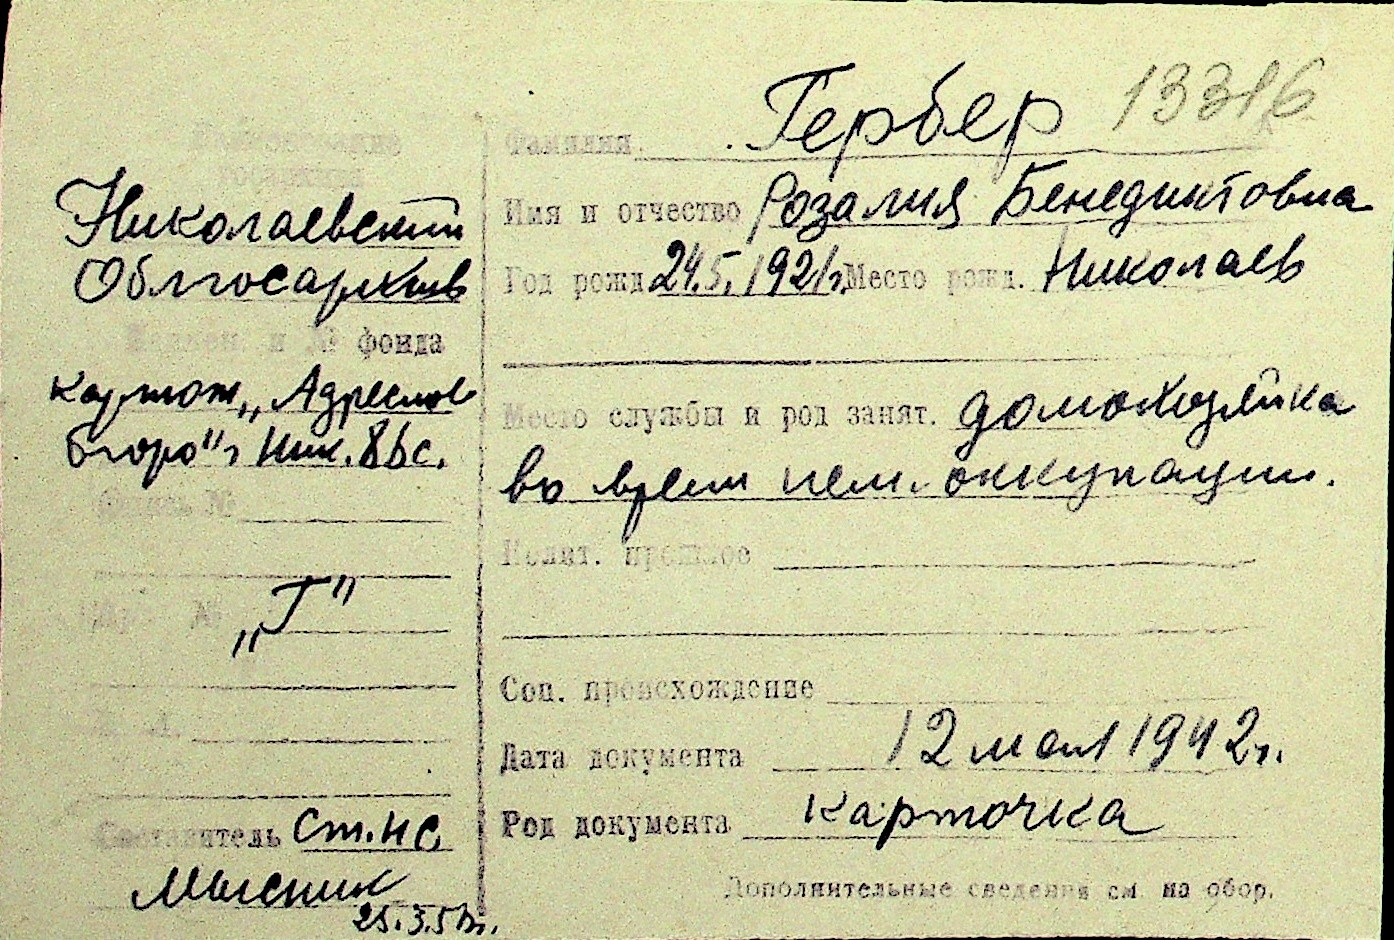 Гербер 13316
Фамилия
Имя и отчество Розалия Бенедиктовна
Год рожд 24.5.1921г. Место рожд. Николаев
Место службы и род занят. домохозяйка
во время нем. оккупации.
Полит. прошлое
Соц. происхождение
Дата документа 12 мая 1942г.
Род документа карточка
Дополнительные сведения см на обор.
Наименование
госархива
Николаевский
Облгосархив
и № фонда
картот. „Адреслов
бюро" г Ник.
Фонда №
№ „Г"
Составитель Ст. НС.
25.3.5